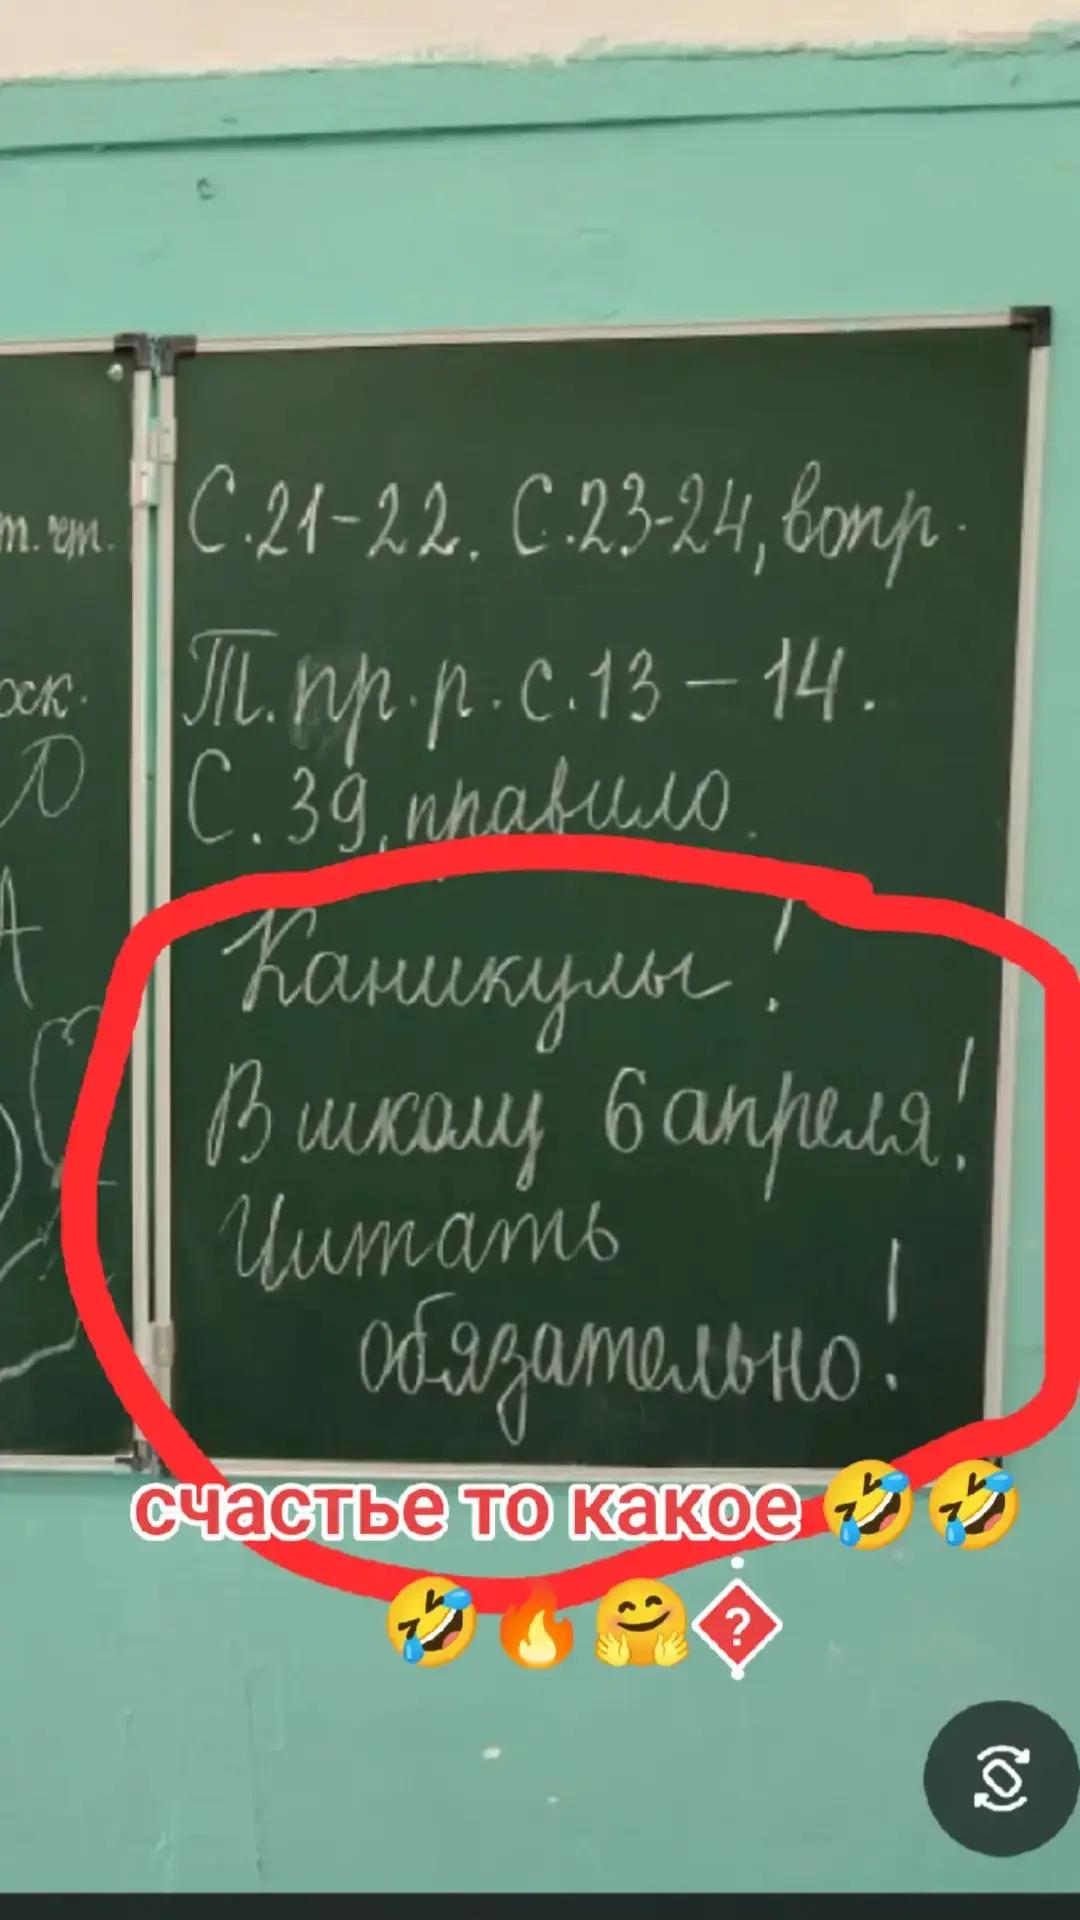 т. чт. С. 21-22. С. 23-24, вопр.
Т. пр. р. с. 13 – 14.
С. 39, правило.
Каникулы!
В школу 6 апреля!
Читать
обязательно!
счастье то какое 🤣🤣
🤣🔥🤗